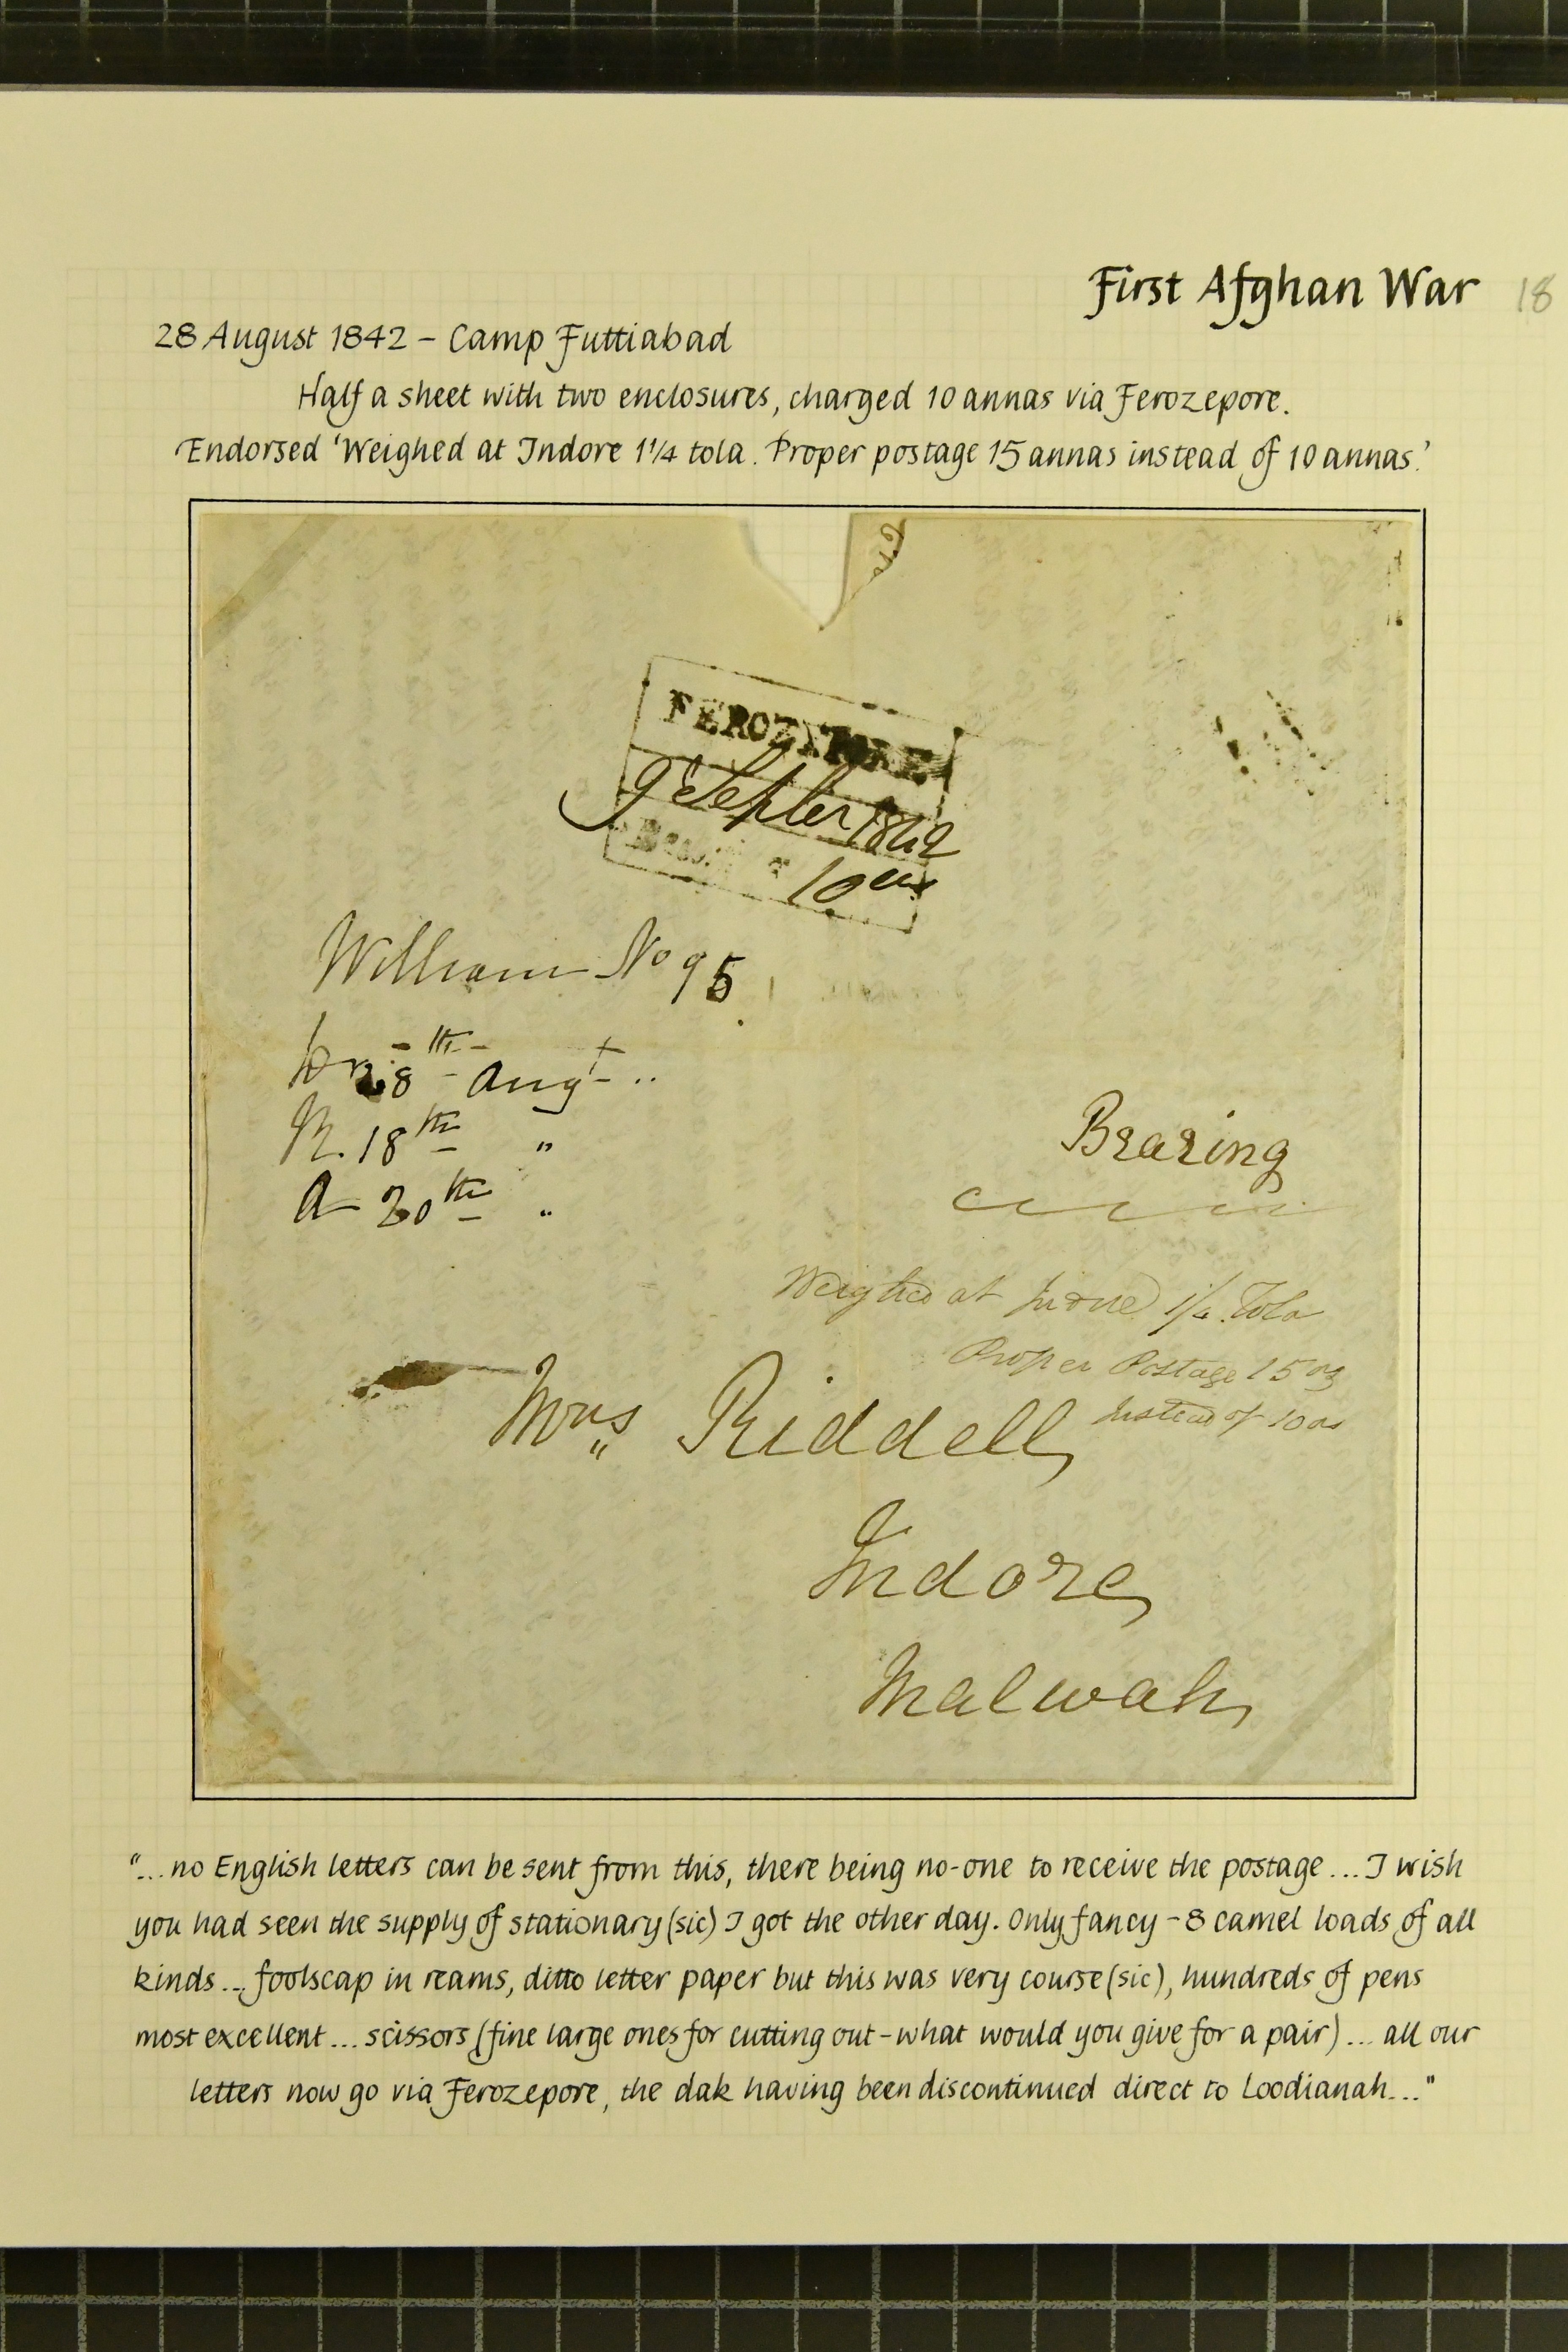 First Afghan War 18
28 August 1842 – Camp Futtiabad
Half a sheet with two enclosures, charged 10 annas via Ferozepore.
Endorsed ‘Weighed at Indore 1¼ tola. Proper postage 15 annas instead of 10 annas.’
FEROZEPORE
9 Septber 1842
10 as
William No 95
28th Augt
18th "
A 30th "
Bearing
Weighed at Indore 1¼ Tola
Proper Postage 15 as
Instead of 10 as
Mrs Riddell,
Indore,
Malwah,
"...no English letters can be sent from this, there being no-one to receive the postage... I wish
you had seen the supply of stationary (sic) I got the other day. Only fancy – 8 camel loads of all
kinds... foolscap in reams, ditto letter paper but this was very course (sic), hundreds of pens
most excellent... scissors (fine large ones for cutting out – what would you give for a pair)... all our
letters now go via Ferozepore, the dak having been discontinued direct to Loodianah..."